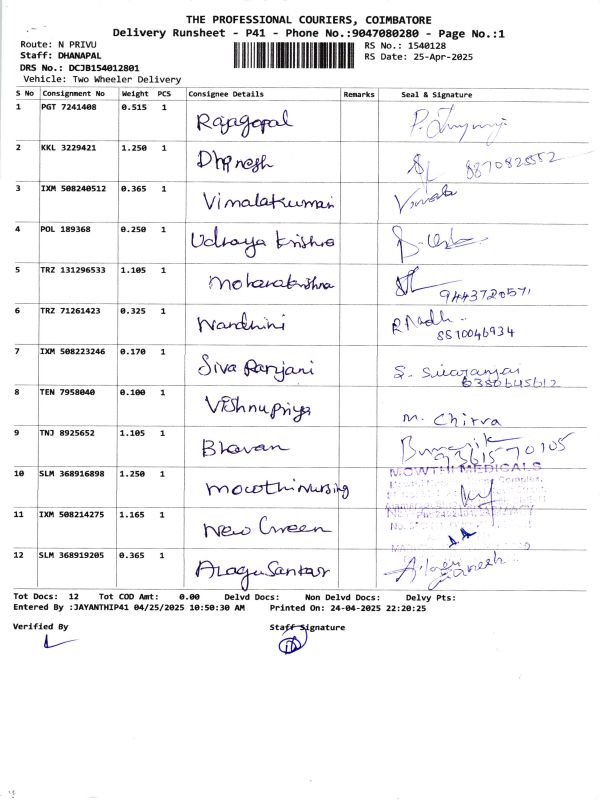 THE PROFESSIONAL COURIERS, COIMBATORE
Delivery Runsheet - P41 - Phone No.:9047080280 - Page No.:1
Route: N PRIVU RS No.: 1540128
Staff: DHANAPAL RS Date: 25-Apr-2025
DRS No.: DCJB154012801
Vehicle: Two Wheeler Delivery
S No Consignment No Weight PCS Consignee Details Remarks Seal & Signature
1 PGT 7241408 0.515 1 Rajagopal
2 KKL 3229421 1.250 1 Dhinesh 8870825552
3 IXM 508240512 0.365 1 Vimalakumari Vimala
4 POL 189368 0.250 1 Udhaya Krishna
5 TRZ 131296533 1.105 1 Mohanakrishna 9443720571
6 TRZ 71261423 0.325 1 Nandhini 8810046934
7 IXM 508223246 0.170 1 Siva Ranjani S. Sivaranjai 6380645612
8 TEN 7958040 0.100 1 Vishnupriya M. Chitra
9 TNJ 8925652 1.105 1 Bhavan 9361570105
10 SLM 368916898 1.250 1 Mowthi Nursing MOWTHI MEDICALS
11 IXM 508214275 1.165 1 New Green
12 SLM 368919205 0.365 1 Alagu Sankar
Tot Docs: 12 Tot COD Amt: 0.00 Delvd Docs: Non Delvd Docs: Delvy Pts:
Entered By :JAYANTHIP41 04/25/2025 10:50:30 AM Printed On: 24-04-2025 22:20:25
Verified By Staff Signature